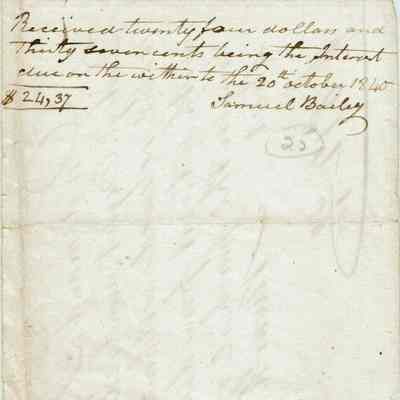 Received twenty four dollars and
thirty seven cents being the Interest
due on the within to the 20th october 1840
$ 24,37 Samuel Bailey
25